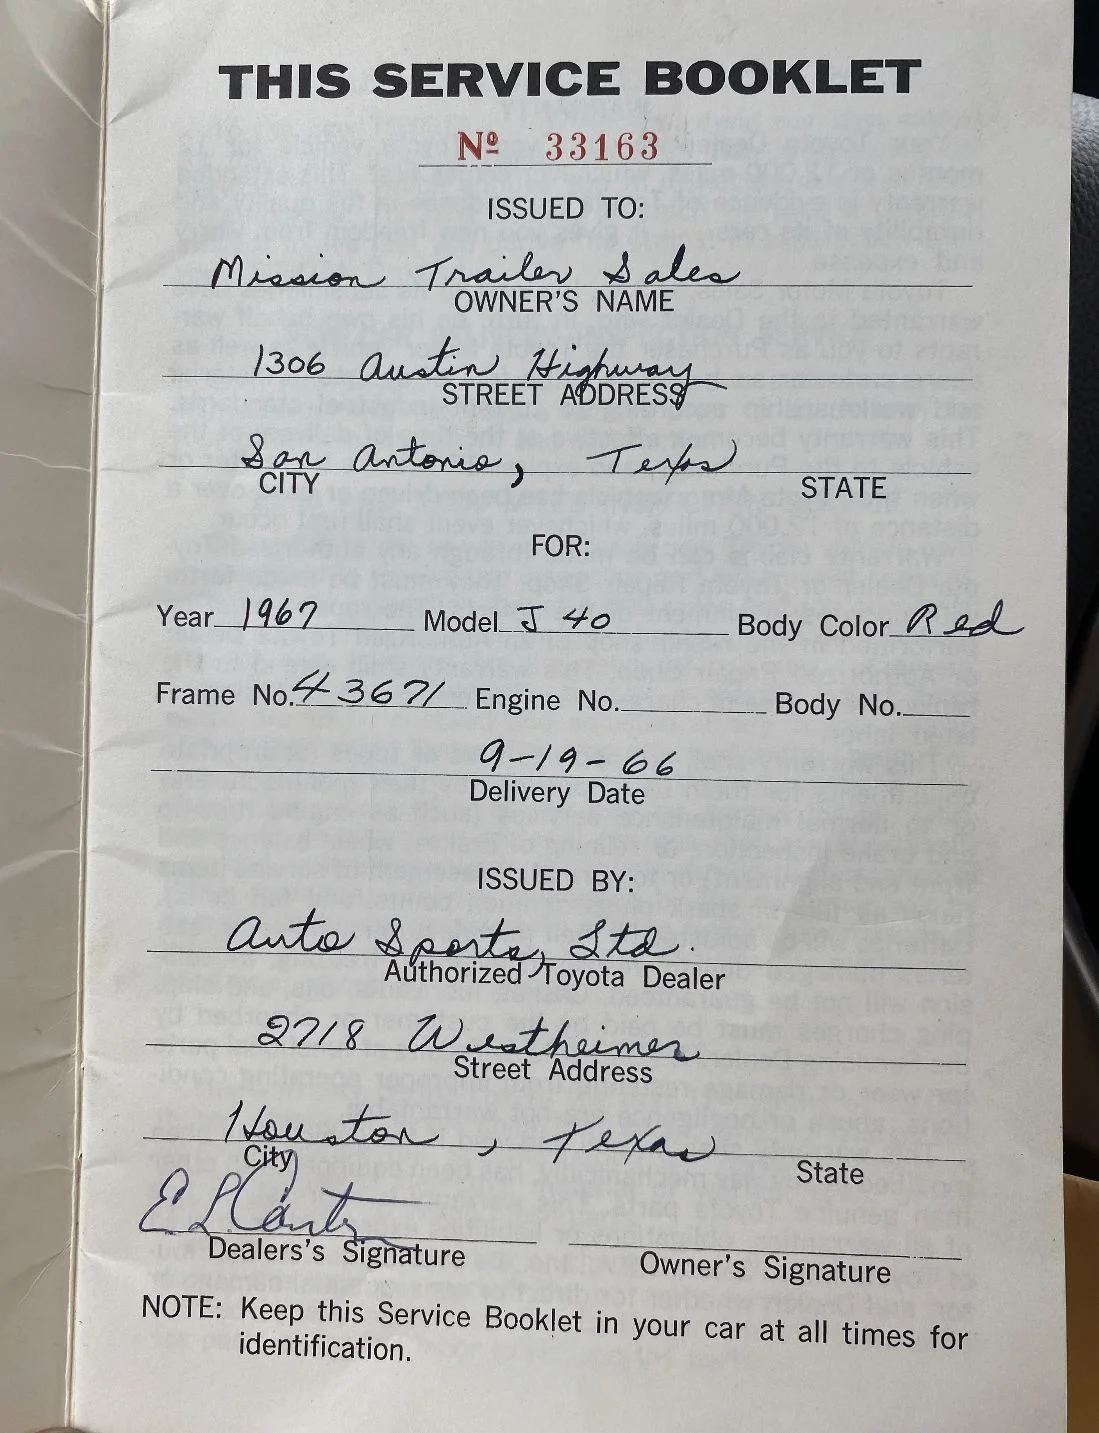 THIS SERVICE BOOKLET
Nº 33163
ISSUED TO:
Mission Trailer Sales
OWNER'S NAME
1306 Austin Highway
STREET ADDRESS
San Antonio, Texas
CITY STATE
FOR:
Year 1967 Model J 40 Body Color Red
Frame No. 43671 Engine No. Body No.
9-19-66
Delivery Date
ISSUED BY:
Auto Sports, Ltd.
Authorized Toyota Dealer
2718 Westheimer
Street Address
Houston, Texas
City State
E L
Dealers's Signature Owner's Signature
NOTE: Keep this Service Booklet in your car at all times for
identification.